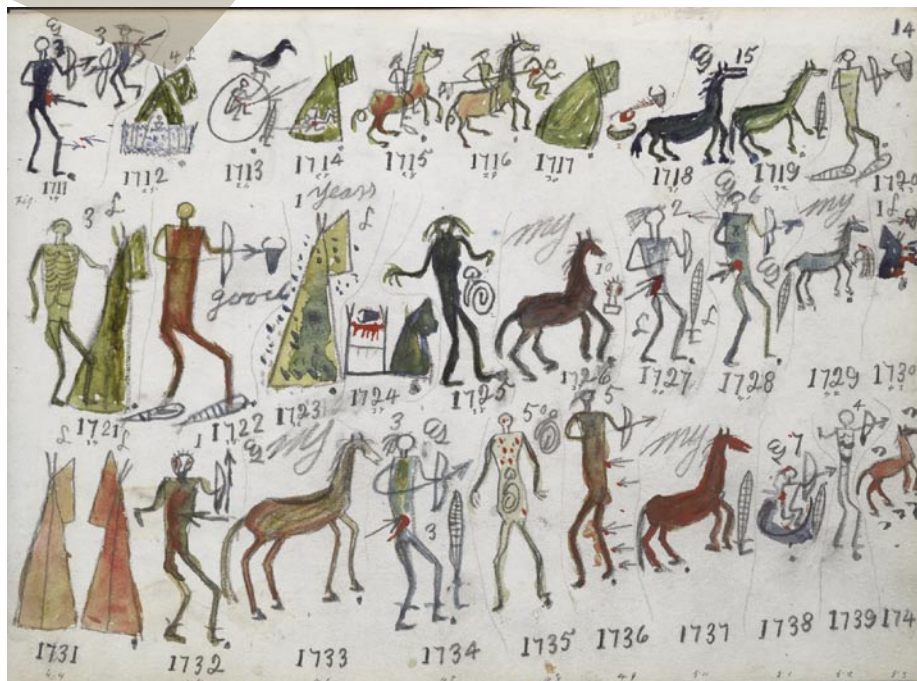 14
3 3 4 £ 15
1711 1712 1713 1714 1715 1716 1717 1718 1719 1720
1 years
3 £ good £ my 10 2 6 my 1 £
1721 1722 1723 1724 1725 1726 1727 1728 1729 1730
£ £ 1 my 3 3 50 5 my 7 4
1731 1732 1733 1734 1735 1736 1737 1738 1739 174